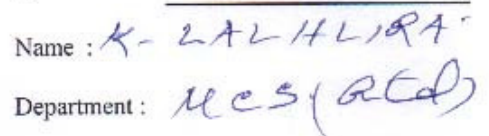 Name : K- LALHLIRA
Department : MCS (Rtd)